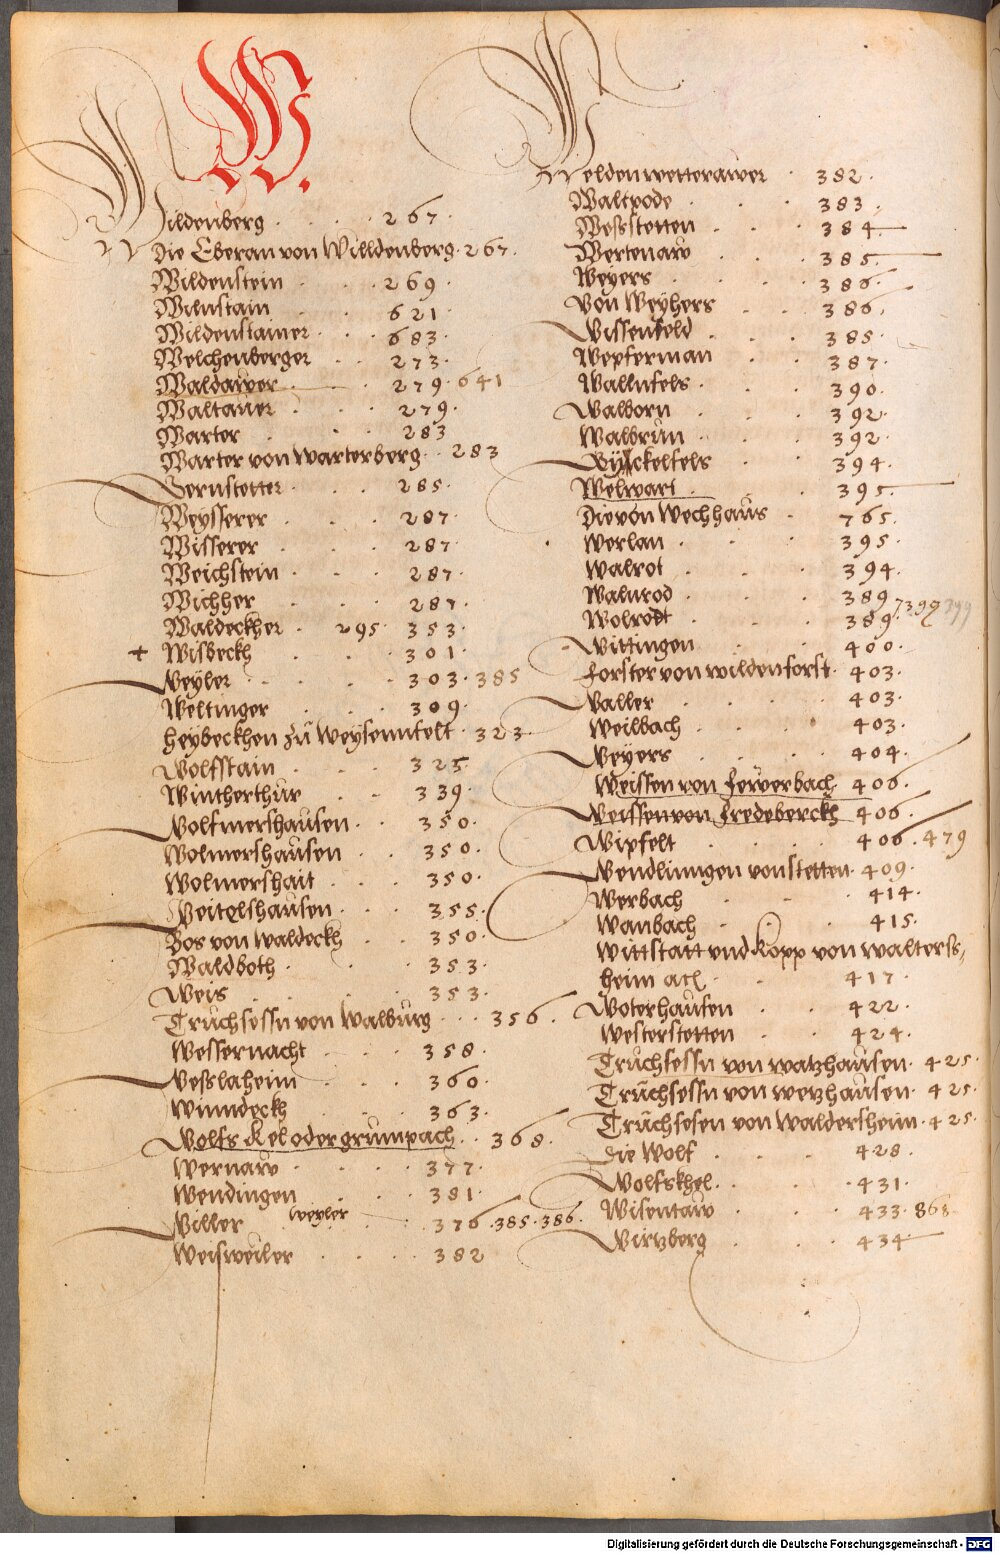 W.
Wildenberg 267
Die Eberan von Willdenberg 267
Wildenstein 269
Wilnstain 621
Wildenstainer 683
Welchenberger 273
Waldawer 279 641
Waltauer 279
Warter 283
Warter von Warterberg 283
Wernstetter 285
Weysserer 287
Wisserer 287
Weichstein 287
Wichher 287
Waldeckher 295 353
+ Wisbeckh 301
Weyler 303 385
Weltinger 309
Heybeckhen zů Weysennfelt 323
Wolfstain 325
Wintherthůr 339
Wolfmershaůsen 350
Wolmershaůsen 350
Wolmershait 350
Weitelshaůsen 355
Bos von Waldeckh 350
Waldboth 353
Weis 353
Trůchsessn von Walbůrg 356
Wessernacht 358
Weßlaheim 360
Winndeckh 363
Wolfs Kel oder grůmpach 368
Wernaw 377
Wendingen 381
Willer weyler 376 385 386
Weisweiler 382
Welden wetterawer 382
Waltpode 383
Wessstetten 384
Wertenaw 385
Weyers 386
Von Weyhers 386
Wissenfeld 385
Wepferman 387
Wallnfels 390
Walborn 392
Walbrůn 392
Wynckelfels 394
Welwart 395
Die von Wechhaůs 765
Werlan 395
Walrot 394
Walnrod 389
Wolrodt 389 399
Wittingen 400
Forster von wildenforst 403
Waller 403
Weilbach 403
Weyers 404
Weissen von Ferverbach 406
Weissen von Fredeberckh 406
Wipfelt 406 479
Wendlinngen von stetten 409
Werbach 414
Wanbach 415
Wittstatt vnd Kopp von walterss,
heim 417
Woterhaůsen 422
Westerstetten 424
Trůchsessn von watzhaůsen 425
Trůchsessn von wetzhaůsen 425
Trůchsesen von Waldersheim 425
Die Wolf 428
Wolfskhel 431
Wisentaw 433 868
Wirtzberg 434
Digitalisierung gefördert durch die Deutsche Forschungsgemeinschaft - DFG